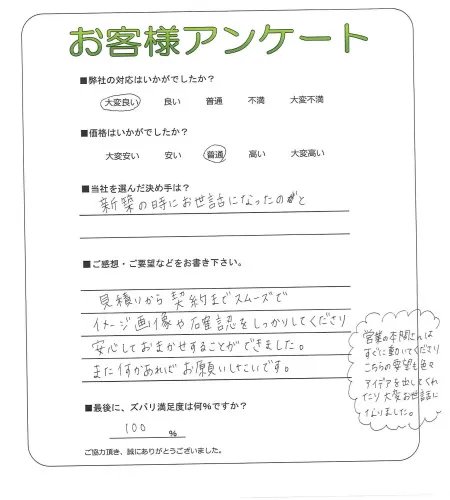 お客様アンケート
■弊社の対応はいかがでしたか？
大変良い 良い 普通 不満 大変不満
■価格はいかがでしたか？
大変安い 安い 普通 高い 大変高い
■当社を選んだ決め手は？
新築の時にお世話になったのがと
■ご感想・ご要望などをお書き下さい。
見積りから契約までスムーズで
イメージ画像や確認をしっかりしてくださり
安心しておまかせすることができました。
また何かあればお願いしたいです。
営業の本間さんは
すぐに動いてくださり
こちらの要望も色々
アイデアを出してくれ
たり大変お世話に
なりました。
■最後に、ズバリ満足度は何％ですか？
100 ％
ご協力頂き、誠にありがとうございました。